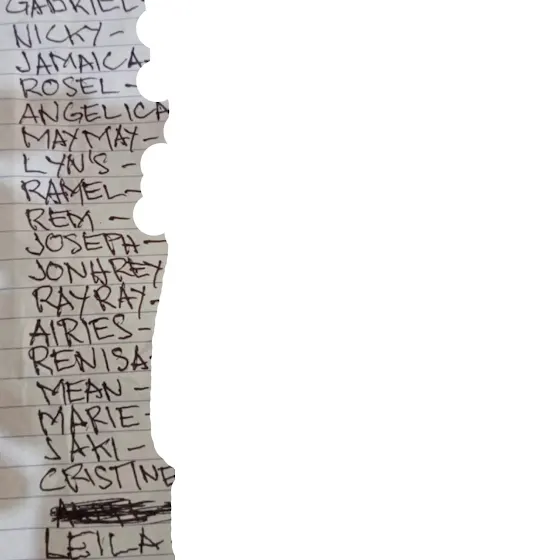 GABRIEL
NICKY -
JAMAICA-
ROSEL -
ANGELICA
MAYMAY -
LYN'S -
RAMEL-
REM -
JOSEPH -
JONHREY
RAYRAY -
AIRIES -
RENISA
MEAN -
MARIE -
SAKI -
CRISTINE
LEILA